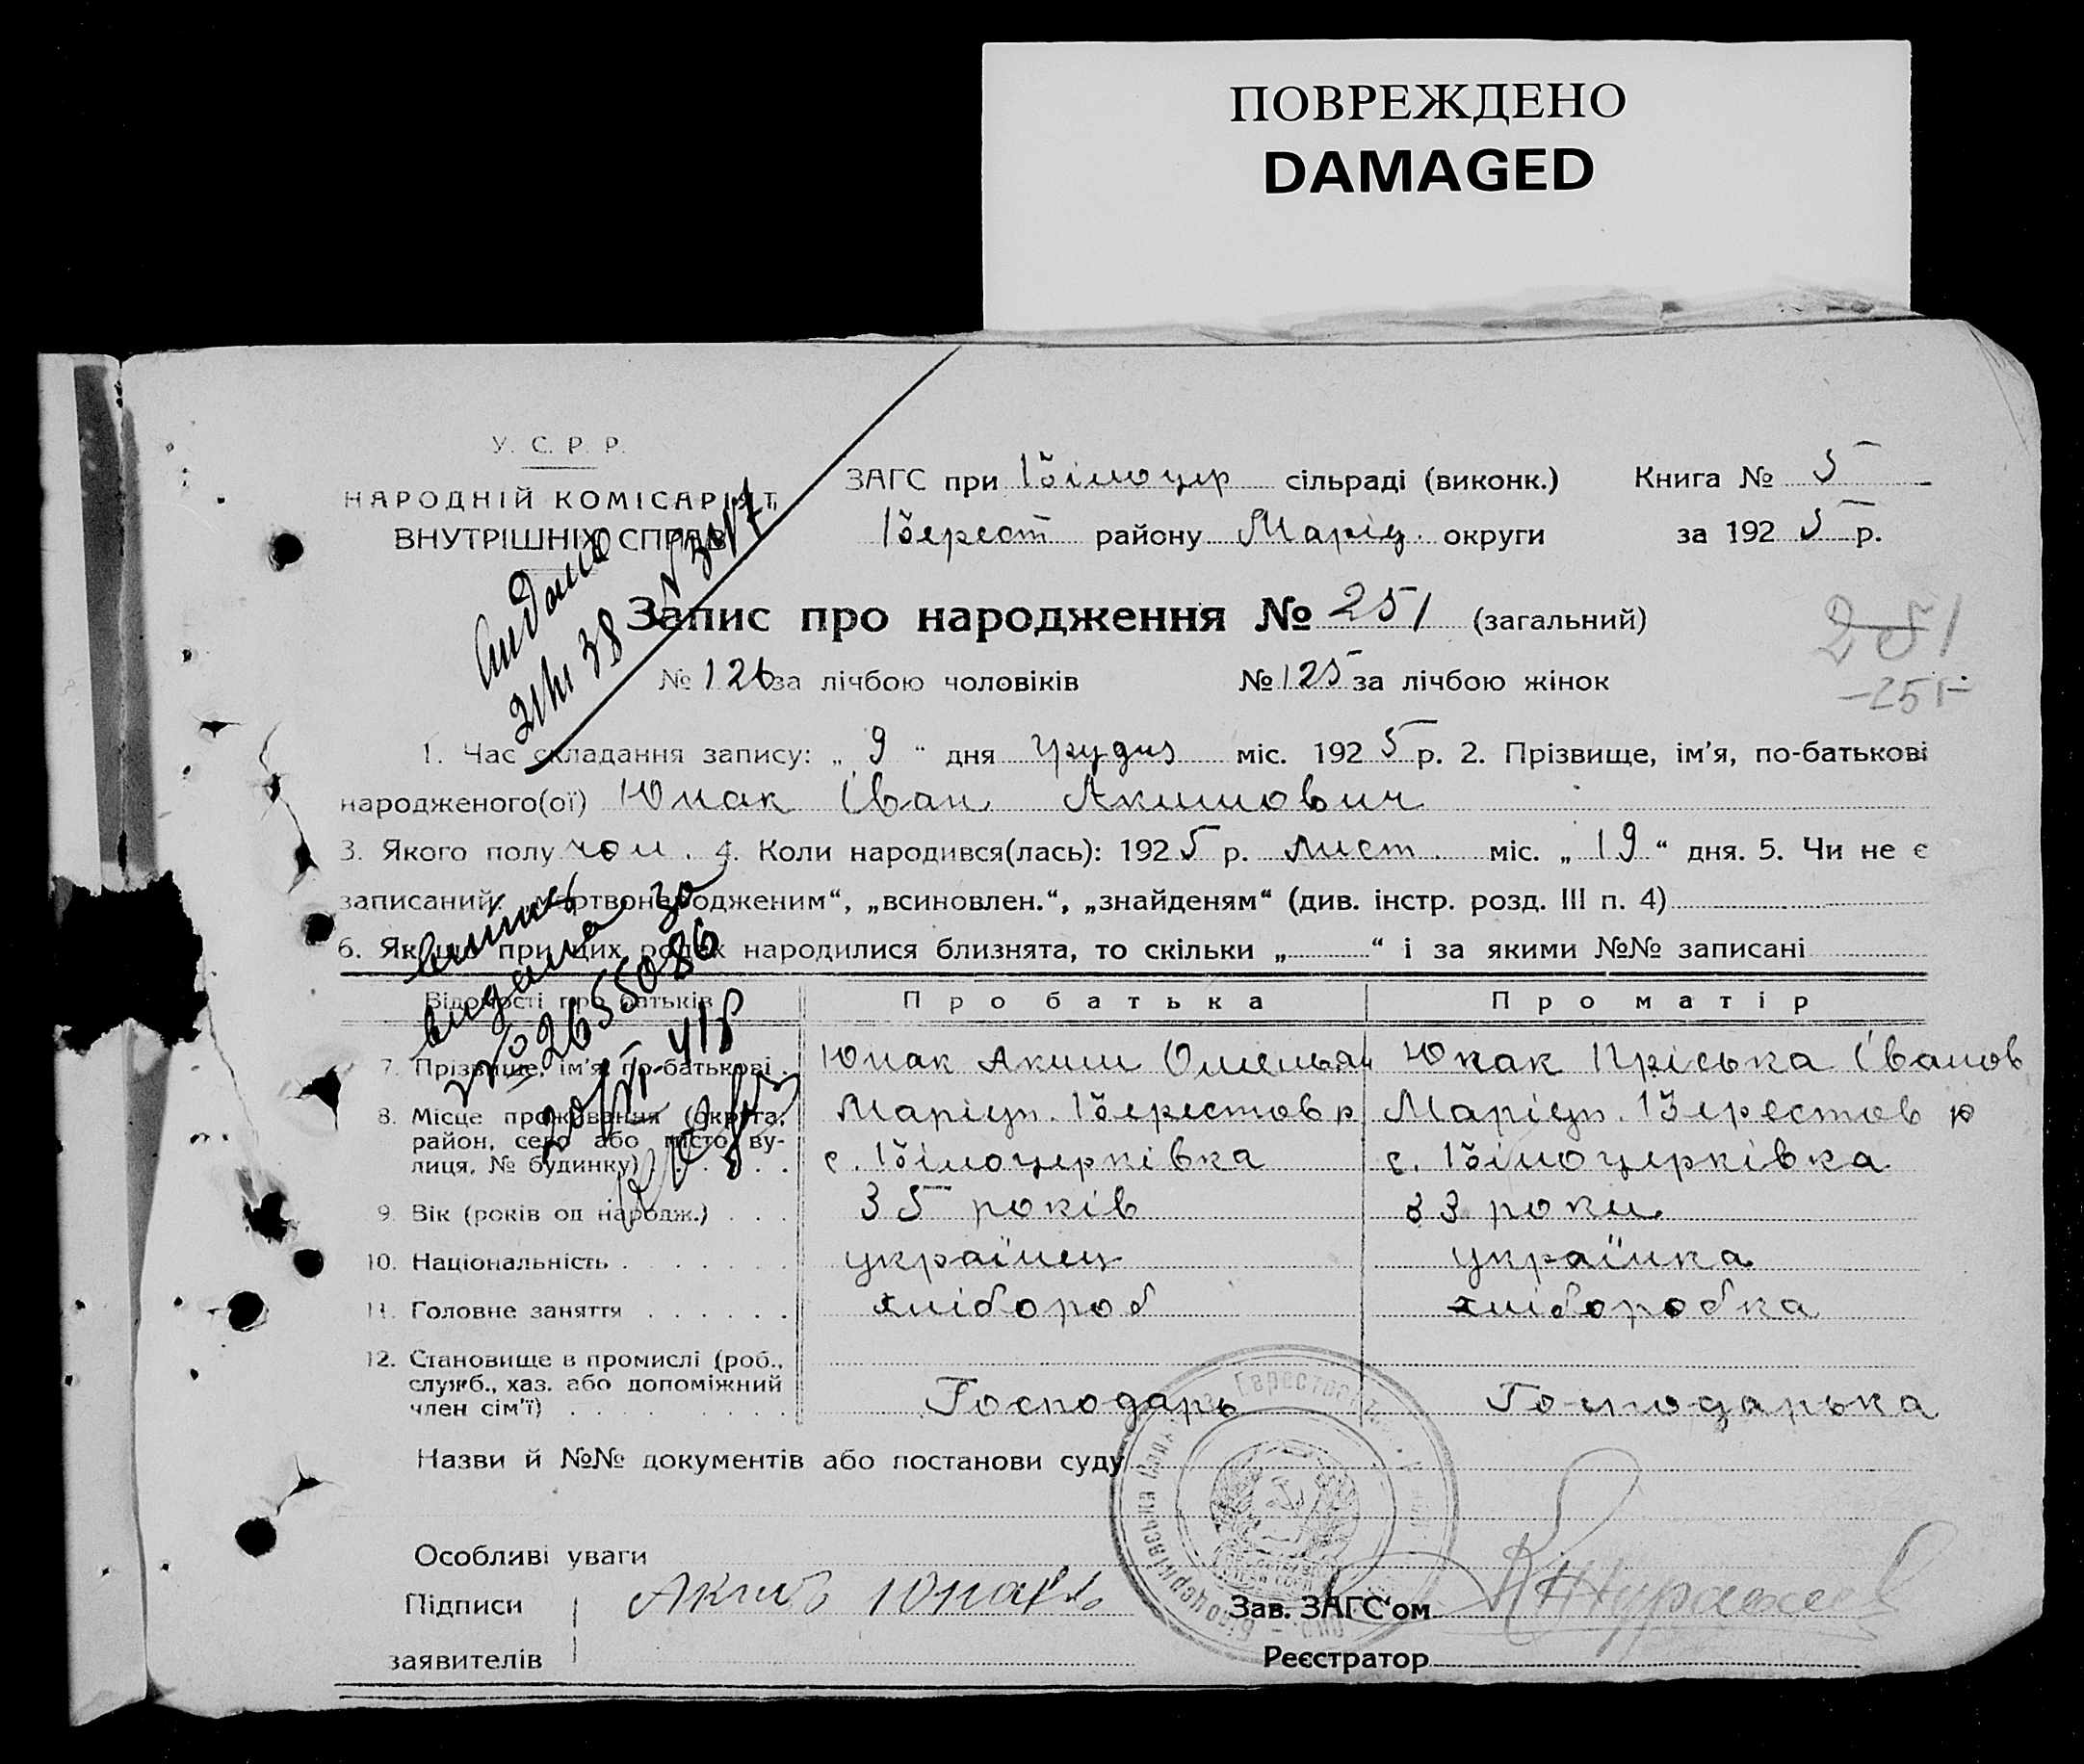 ПОВРЕЖДЕНО
DAMAGED
У. С. Р. Р.
НАРОДНІЙ КОМІСАРІЯТ
ВНУТРІШНІХ СПРАВ
ЗАГС при Білоцер сільраді (виконк.) Книга № 5
Берест району Маріу. округи за 1925 р.
Запис про народження № 251 (загальний)
251
№ 126 за лічбою чоловіків № 125 за лічбою жінок
251
1. Час складання запису: „ 9 “ дня грудня міс. 1925 р. 2. Прізвище, ім’я, по-батькові
народженого(ої) Юнак Іван Акимович
3. Якого полу чол. 4. Коли народився(лась): 1925 р. лист. міс. „ 19 “ дня. 5. Чи не є
записаний: „мертвонародженим“, „всиновлен.“, „знайденям“ (див. інстр. розд. III п. 4)
6. Якщо при цих родах народилися близнята, то скільки „ “ і за якими №№ записані
Відомості про батьків Про батька Про матір
7. Прізвище, ім’я, по-батькові Юнак Аким Омельян Юнак Пріська Іванов
8. Місце проживання (округа, район, село або місто, ву-лиця, № будинку) Маріуп. Берестов р Маріуп. Берестов р
с. Білоцерківка с. Білоцерківка
9. Вік (років од народж.) 35 років 33 роки
10. Національність українец українка
11. Головне заняття хлібороб хліборобка
12. Становище в промислі (роб., служб., хаз. або допоміжний член сім’ї) Господарь Господарька
Назви й №№ документів або постанови суду
Особливі уваги
Підписи Аким Юнакъ Зав. ЗАГС‘ом
заявителів Реєстратор
видано за
№ 2655086